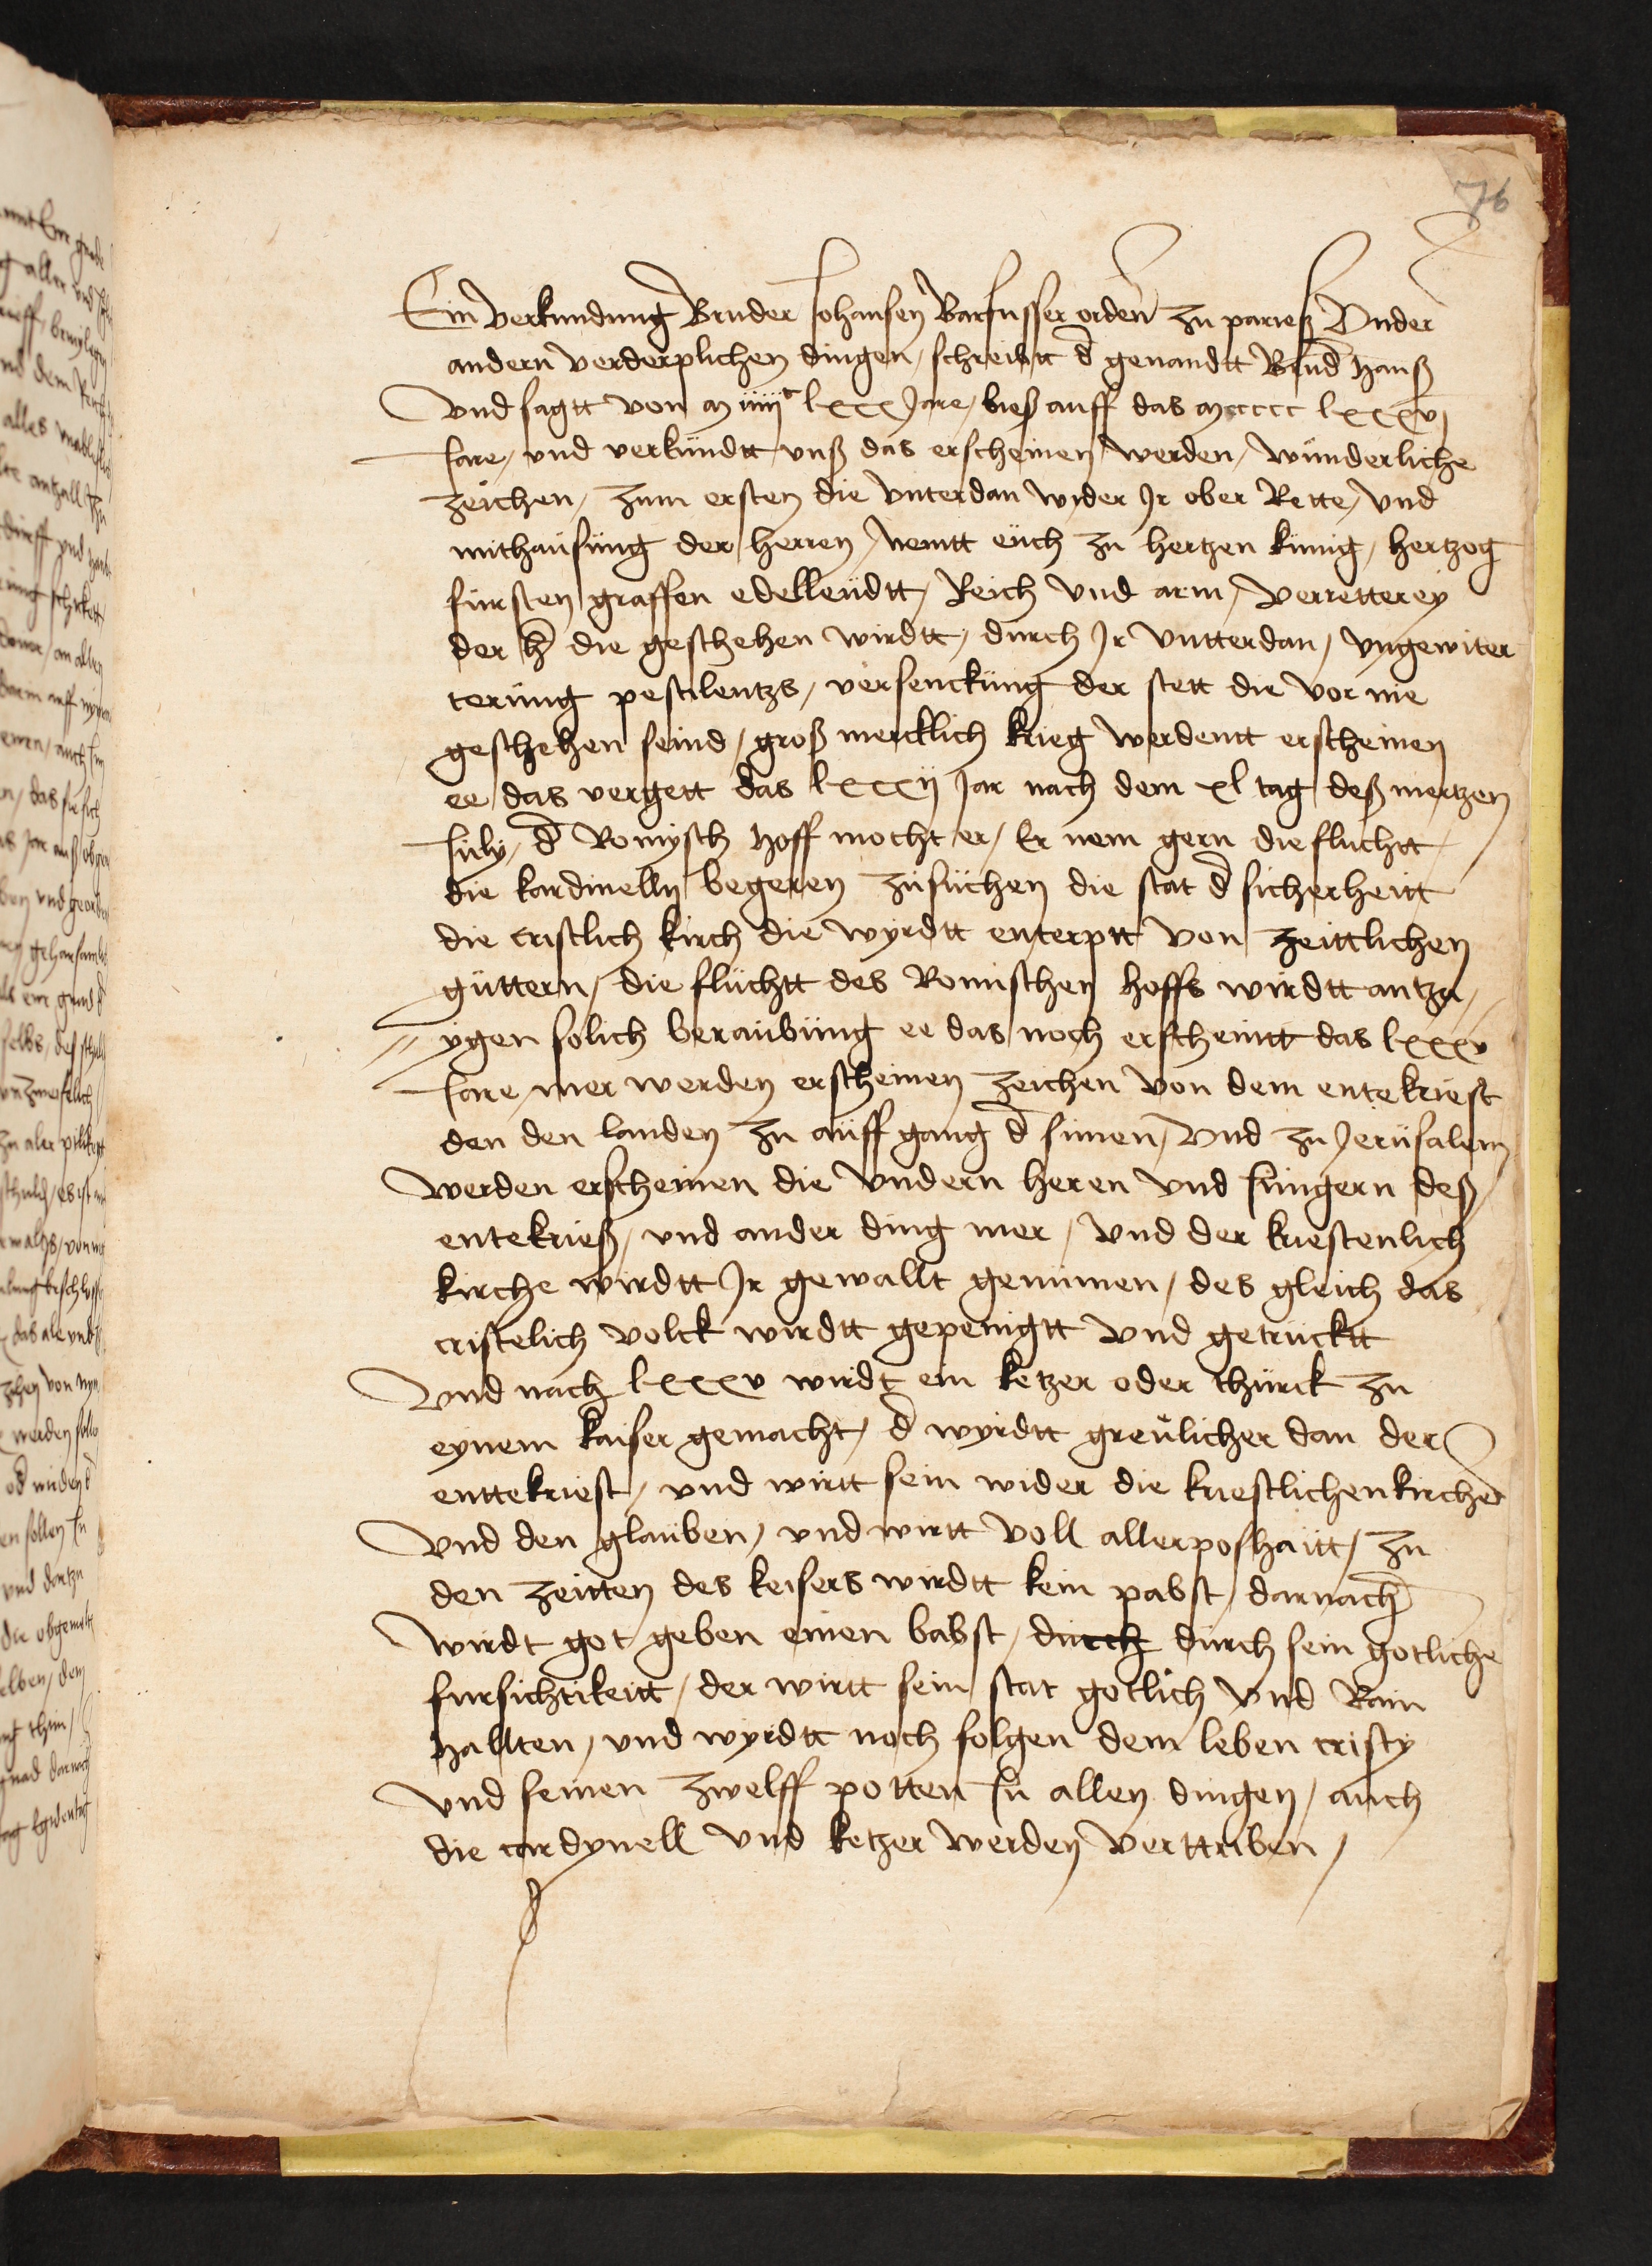 76
Ein verkundung Bruder Johansen Barfusser orden zu parieß Vnder
andern verderplichen dingen / schreibtt d̄ genandtt Brud̄ Hanß
Vnd sagtt von m iiiiᶜ lxxx Jare / bieß auff das mcccc lxxxvj
Jare / vnd verkündtt vnß das erscheinen werden / wünderliche
zeichen / zum ersten die vnterdan wyder Jr ober Rette / vnd
mithaüsüng der herren / nemtt eüch zu hertzen künig / hertzog
fürsten graffen edelleüdtt / Reich vnd arm / verretterey
der h̄ die geschehen wirdtt / durch Jr vntterdan / vngewiter
terüng pestilentzs / versencküng der stett die vor nie
geschehen seind / groß mercklich krieg werdentt erscheinen
ee das vergett das lxxxij Jar nach dem xl tag deß mertzen
July / d̄ Romysch Hoff mocht er / Er nem gern die fluchtt
die kardinelln begeren züsüchen die stat d̄ sicherheitt
die cristlich kirch die wyrdtt enterptt von zeittlichen
güttern / die flüchtt des Romischen hoffs wirdtt antza /
ygen solich beraübüng ee das noch erscheintt das lxxxv
Jare / mer werden erscheinen zeichen von dem entekriest
den den landen zu aüff gang d̄ sünen / vnd zu Jerüsalem
werden erscheinen die vndern heren vnd Jüngern deß
entekrieß / vnd ander ding mer / vnd der kriestenlich
kirche wirdtt Jr gewallt genümen / des gleich das
cristelich volck wirdtt gepenigtt vnd getrücktt
Vnd nach lxxxv wirdt ein ketzer oder thürck zu
eynem kaiser gemacht / d̄ wyrdtt greülicher dan der
enttekriest / vnd wirtt sein wider die kriestlichen kirche
Vnd den glaüben / vnd wirtt voll aller poshaitt / zu
den zeitten des keisers wirdtt kein pabst / darnach
wirdt got geben einen babst / durch durch sein gotliche
fursichtikeitt / der wirtt sein stat gotlich vnd Rain
Hallten / vnd wyrdtt noch folgen dem leben cristy
vnd seinen zwelff potten Jn allen dingen / auch
die cardynell vnd ketzer werden verttriben /